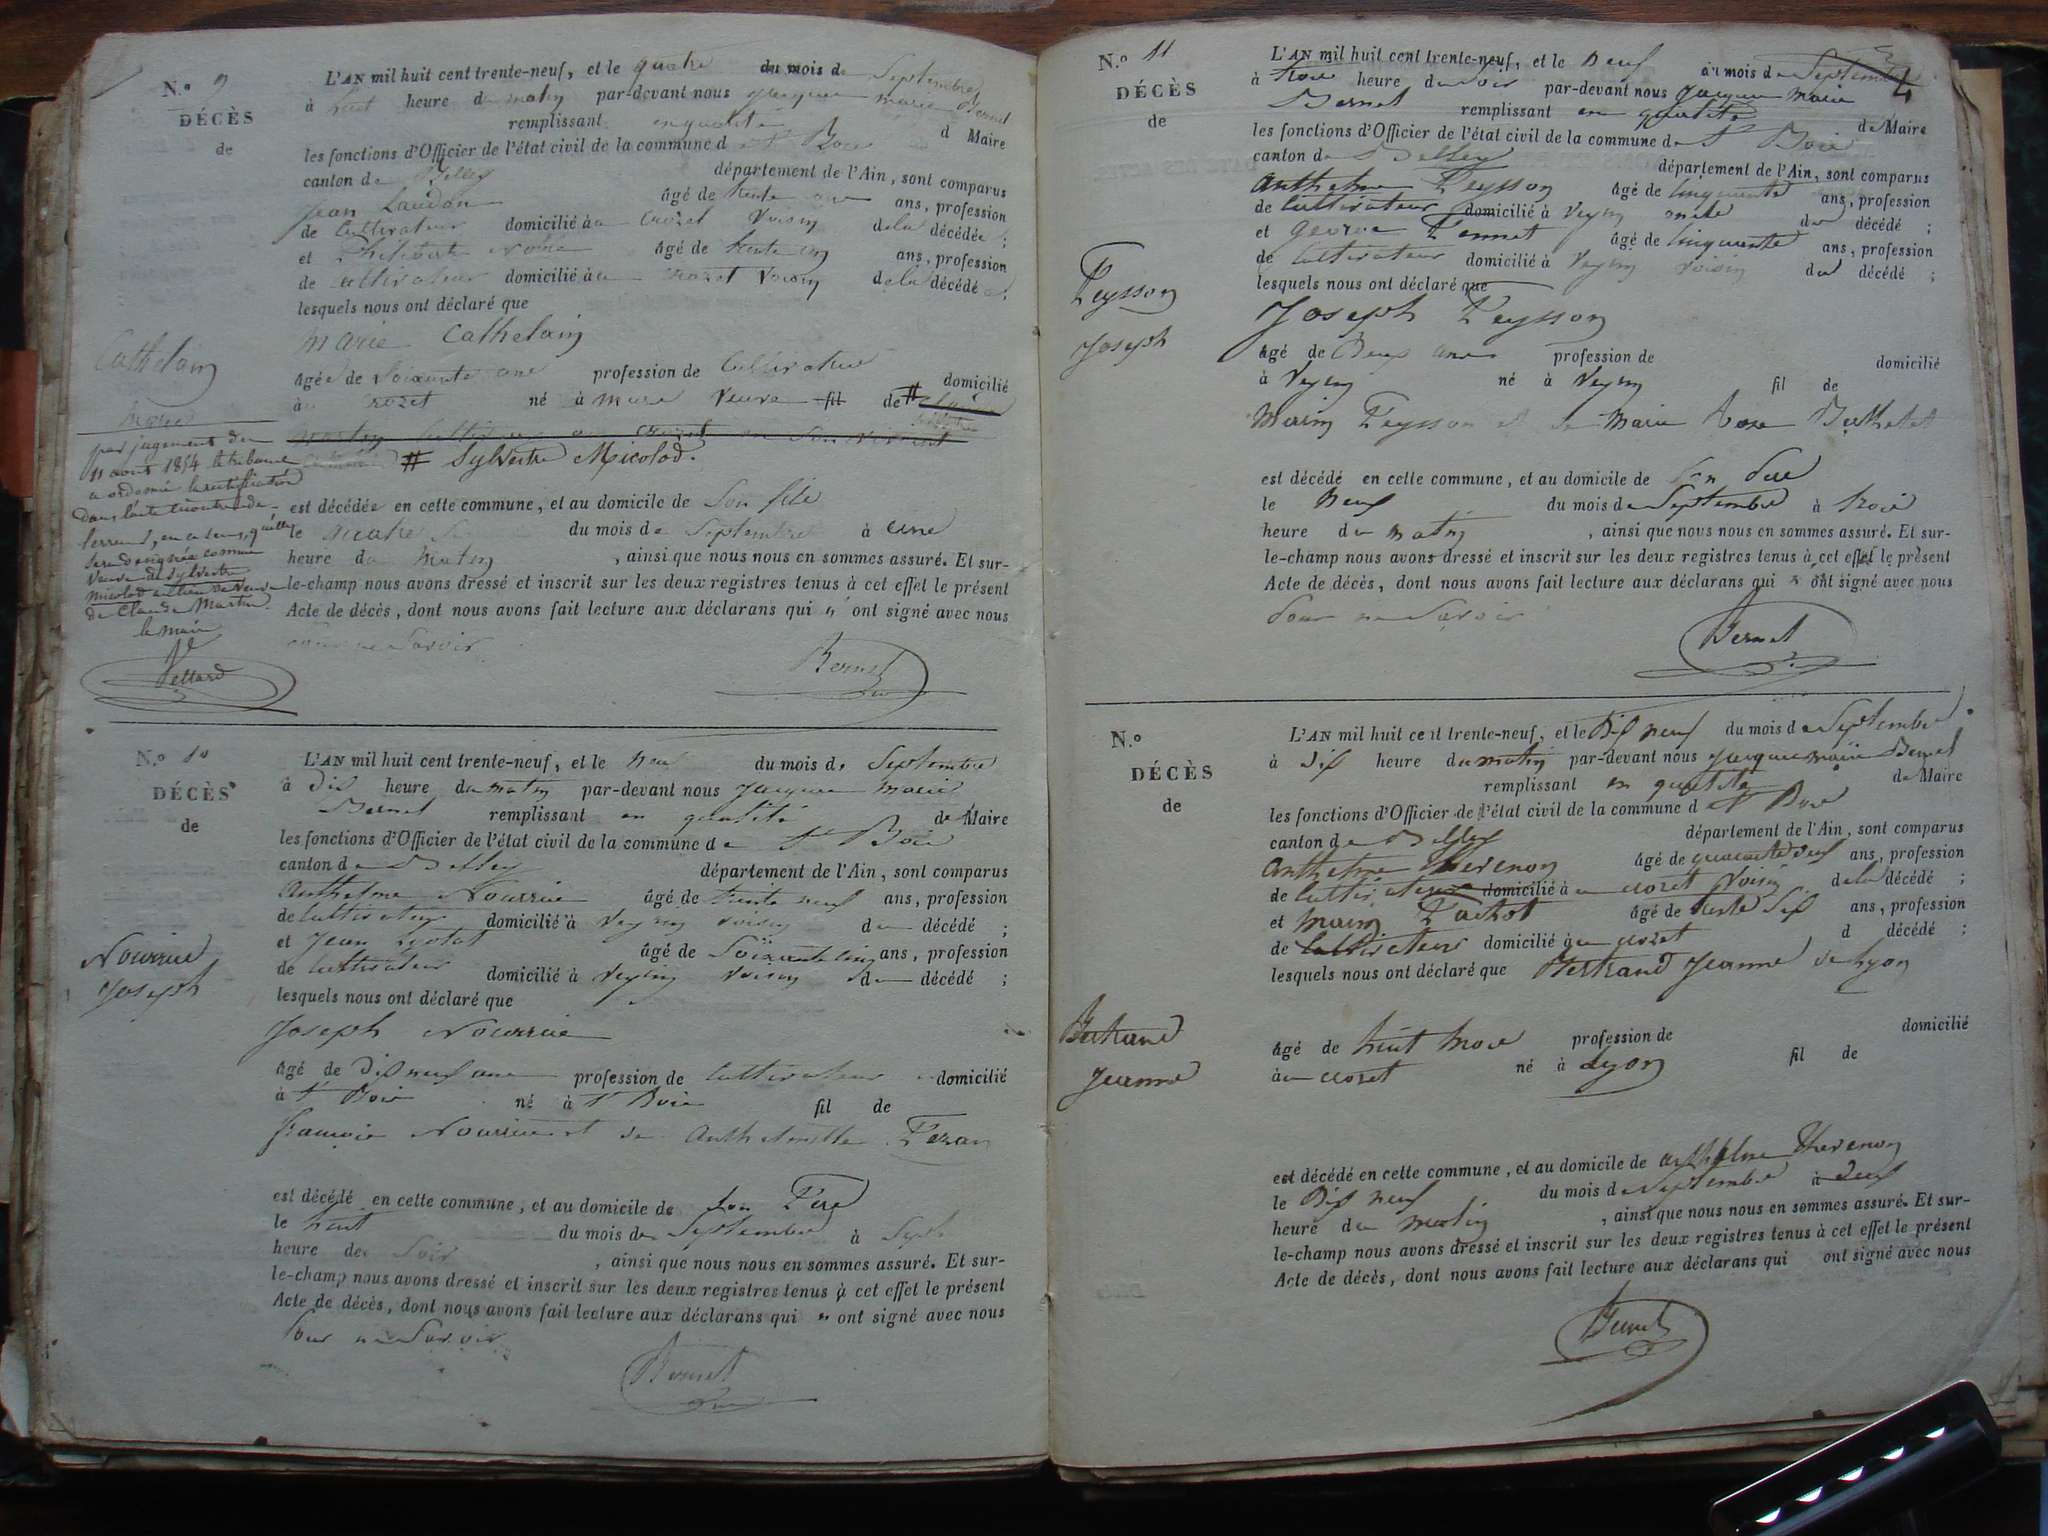 N.º 9
DÉCÈS
de
L'AN mil huit cent trente-neuf, et le quatre du mois de Septembre
à huit heure du matin par-devant nous jacques marie Bernet
remplissant en qualité d Maire
les fonctions d'Officier de l'état civil de la commune d St Bois
canton de Belley département de l'Ain, sont comparus
jean Laudon âgé de trente ans, profession
de Cultivateur domicilié au crozet voisin de la décédée ;
et Philibert âgé de trente cinq ans, profession
de cultivateur domicilié au crozet voisin de la décédée ;
lesquels nous ont déclaré que
marie Cathelain
âgée de Soixante ans profession de Cultivateur domicilié
au crozet né à mure veuve fil de #
martin cultivateur au crozet
# Sylvestre Micolod.
est décédée en cette commune, et au domicile de Son fils
le quatre du mois de Septembre à une
heure du Matin , ainsi que nous nous en sommes assuré. Et sur-
le-champ nous avons dressé et inscrit sur les deux registres tenus à cet effet le présent
Acte de décès, dont nous avons fait lecture aux déclarans qui n' ont signé avec nous
pour ne Savoir
Bernet
Cathelain
Marie
par jugement du
11 août 1854 le tribunal
a ordonné la rectification
dans l'acte ci-contre de
l'erreur, en ce sens, qu'elle
sera désignée comme
veuve de Sylvestre
Micolod au lieu de veuve
de Claude Martin.
le maire
Pellard
N.º 10
DÉCÈS
de
L'AN mil huit cent trente-neuf, et le neuf du mois de Septembre
à dix heure du matin par-devant nous jacques marie
Bernet remplissant en qualité de Maire
les fonctions d'Officier de l'état civil de la commune de St Bois
canton de Belley département de l'Ain, sont comparus
Anthelme Nourrice âgé de trente neuf ans, profession
de Cultivateur domicilié à Veyrin voisin du décédé ;
et jean Lyotat âgé de Soixante cinq ans, profession
de cultivateur domicilié à Veyrin voisin du décédé ;
lesquels nous ont déclaré que
joseph Nourrice
âgé de dix neuf ans profession de Cultivateur domicilié
à St Bois né à St Bois fil de
françois Nourrice et de Anthelmette
est décédé en cette commune, et au domicile de Son Père
le huit du mois de Septembre à Sept
heure de Soir , ainsi que nous nous en sommes assuré. Et sur-
le-champ nous avons dressé et inscrit sur les deux registres tenus à cet effet le présent
Acte de décès, dont nous avons fait lecture aux déclarans qui n ont signé avec nous
pour ne Savoir
Bernet
Nourrice
joseph
N.º 11
4
DÉCÈS
de
L'AN mil huit cent trente-neuf, et le neuf du mois de Septembre
à trois heure du Soir par-devant nous jacques marie
Bernet remplissant en qualité de Maire
les fonctions d'Officier de l'état civil de la commune de St Bois
canton de Belley département de l'Ain, sont comparus
Anthelme Peysson âgé de cinquante ans, profession
de Cultivateur domicilié à Veyrin oncle du décédé ;
et george Pernet âgé de cinquante ans, profession
de Cultivateur domicilié à Veyrin voisin du décédé ;
lesquels nous ont déclaré que
joseph Peysson
âgé de Deux ans profession de domicilié
à Veyrin né à Veyrin fil de
Marin Peysson et de Marie Rose Berthelet
est décédé en cette commune, et au domicile de Son Père
le neuf du mois de Septembre à trois
heure du matin , ainsi que nous nous en sommes assuré. Et sur-
le-champ nous avons dressé et inscrit sur les deux registres tenus à cet effet le présent
Acte de décès, dont nous avons fait lecture aux déclarans qui n' ont signé avec nous
pour ne Savoir
Bernet
Peysson
joseph
N.º
DÉCÈS
de
L'AN mil huit cent trente-neuf, et le Dix neuf du mois de Septembre
à Dix heure du matin par-devant nous jacques marie Bernet
remplissant en qualité de Maire
les fonctions d'Officier de l'état civil de la commune d St Bois
canton de Belley département de l'Ain, sont comparus
Anthelme Thevenon âgé de quarante deux ans, profession
de Cultivateur domicilié au crozet voisin de la décédé ;
et Marin Pachot âgé de trente Six ans, profession
de Cultivateur domicilié au crozet d décédé ;
lesquels nous ont déclaré que Bertrand jeanne de Lyon
âgé de huit mois profession de domicilié
au crozet né à Lyon fil de
est décédé en cette commune, et au domicile de anthelme Thevenon
le Dix neuf du mois de Septembre à Deux
heure du matin , ainsi que nous nous en sommes assuré. Et sur-
le-champ nous avons dressé et inscrit sur les deux registres tenus à cet effet le présent
Acte de décès, dont nous avons fait lecture aux déclarans qui ont signé avec nous
Bernet
Bertrand
jeanne